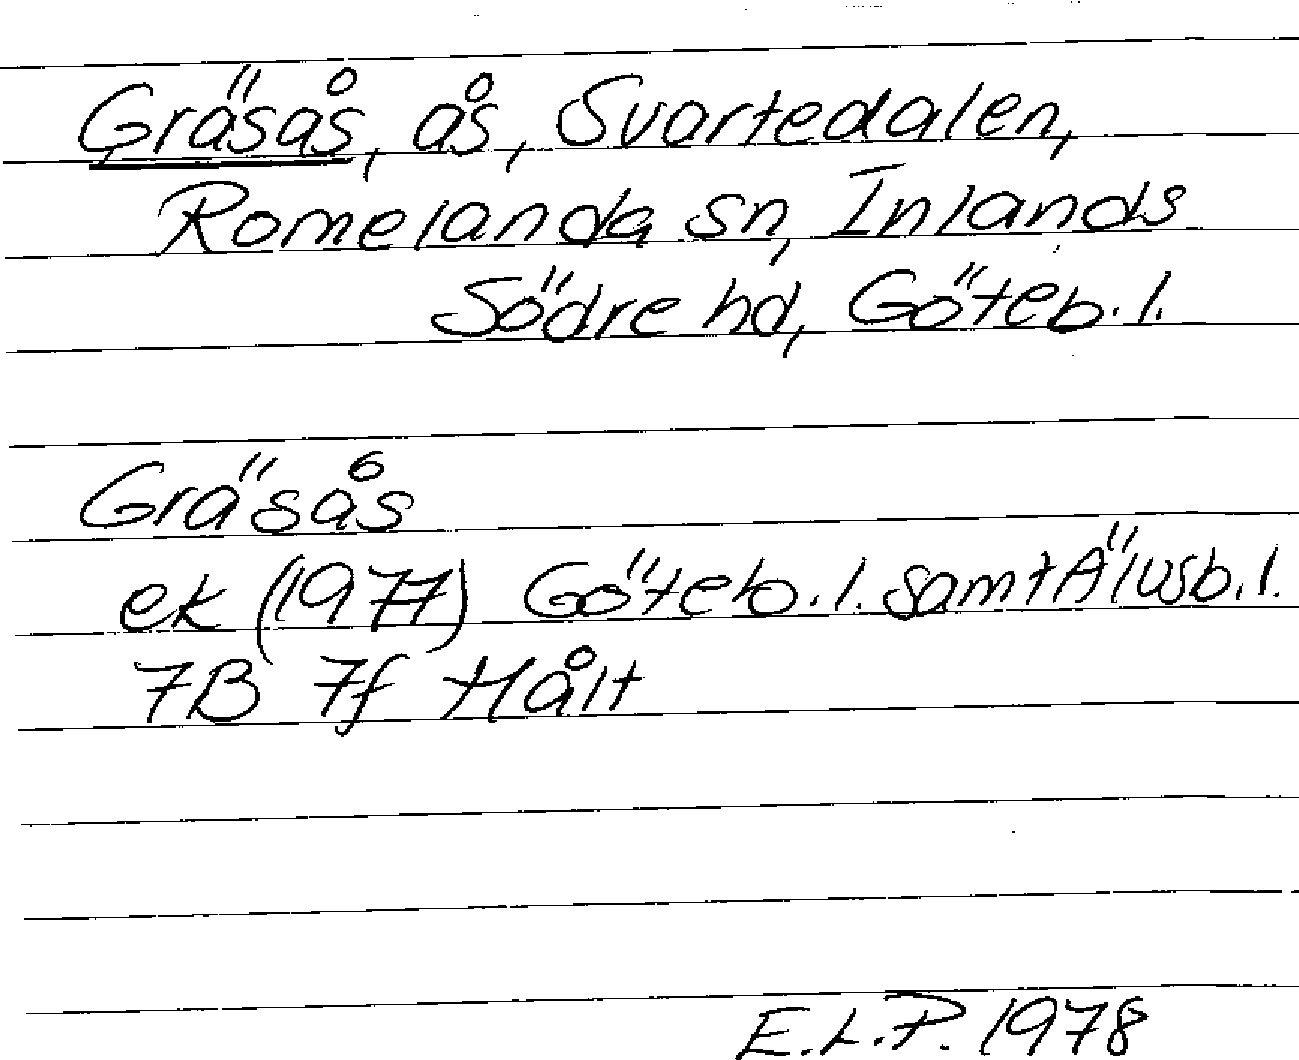 Gräsås, ås, Svartedalen,
Romelanda sn, Inlands
Södre hd, Göteb. l.
Gräsås
ek (1977) Göteb. l. samt Älvsb. l.
7B 7f Hålt
E.L.P. 1978